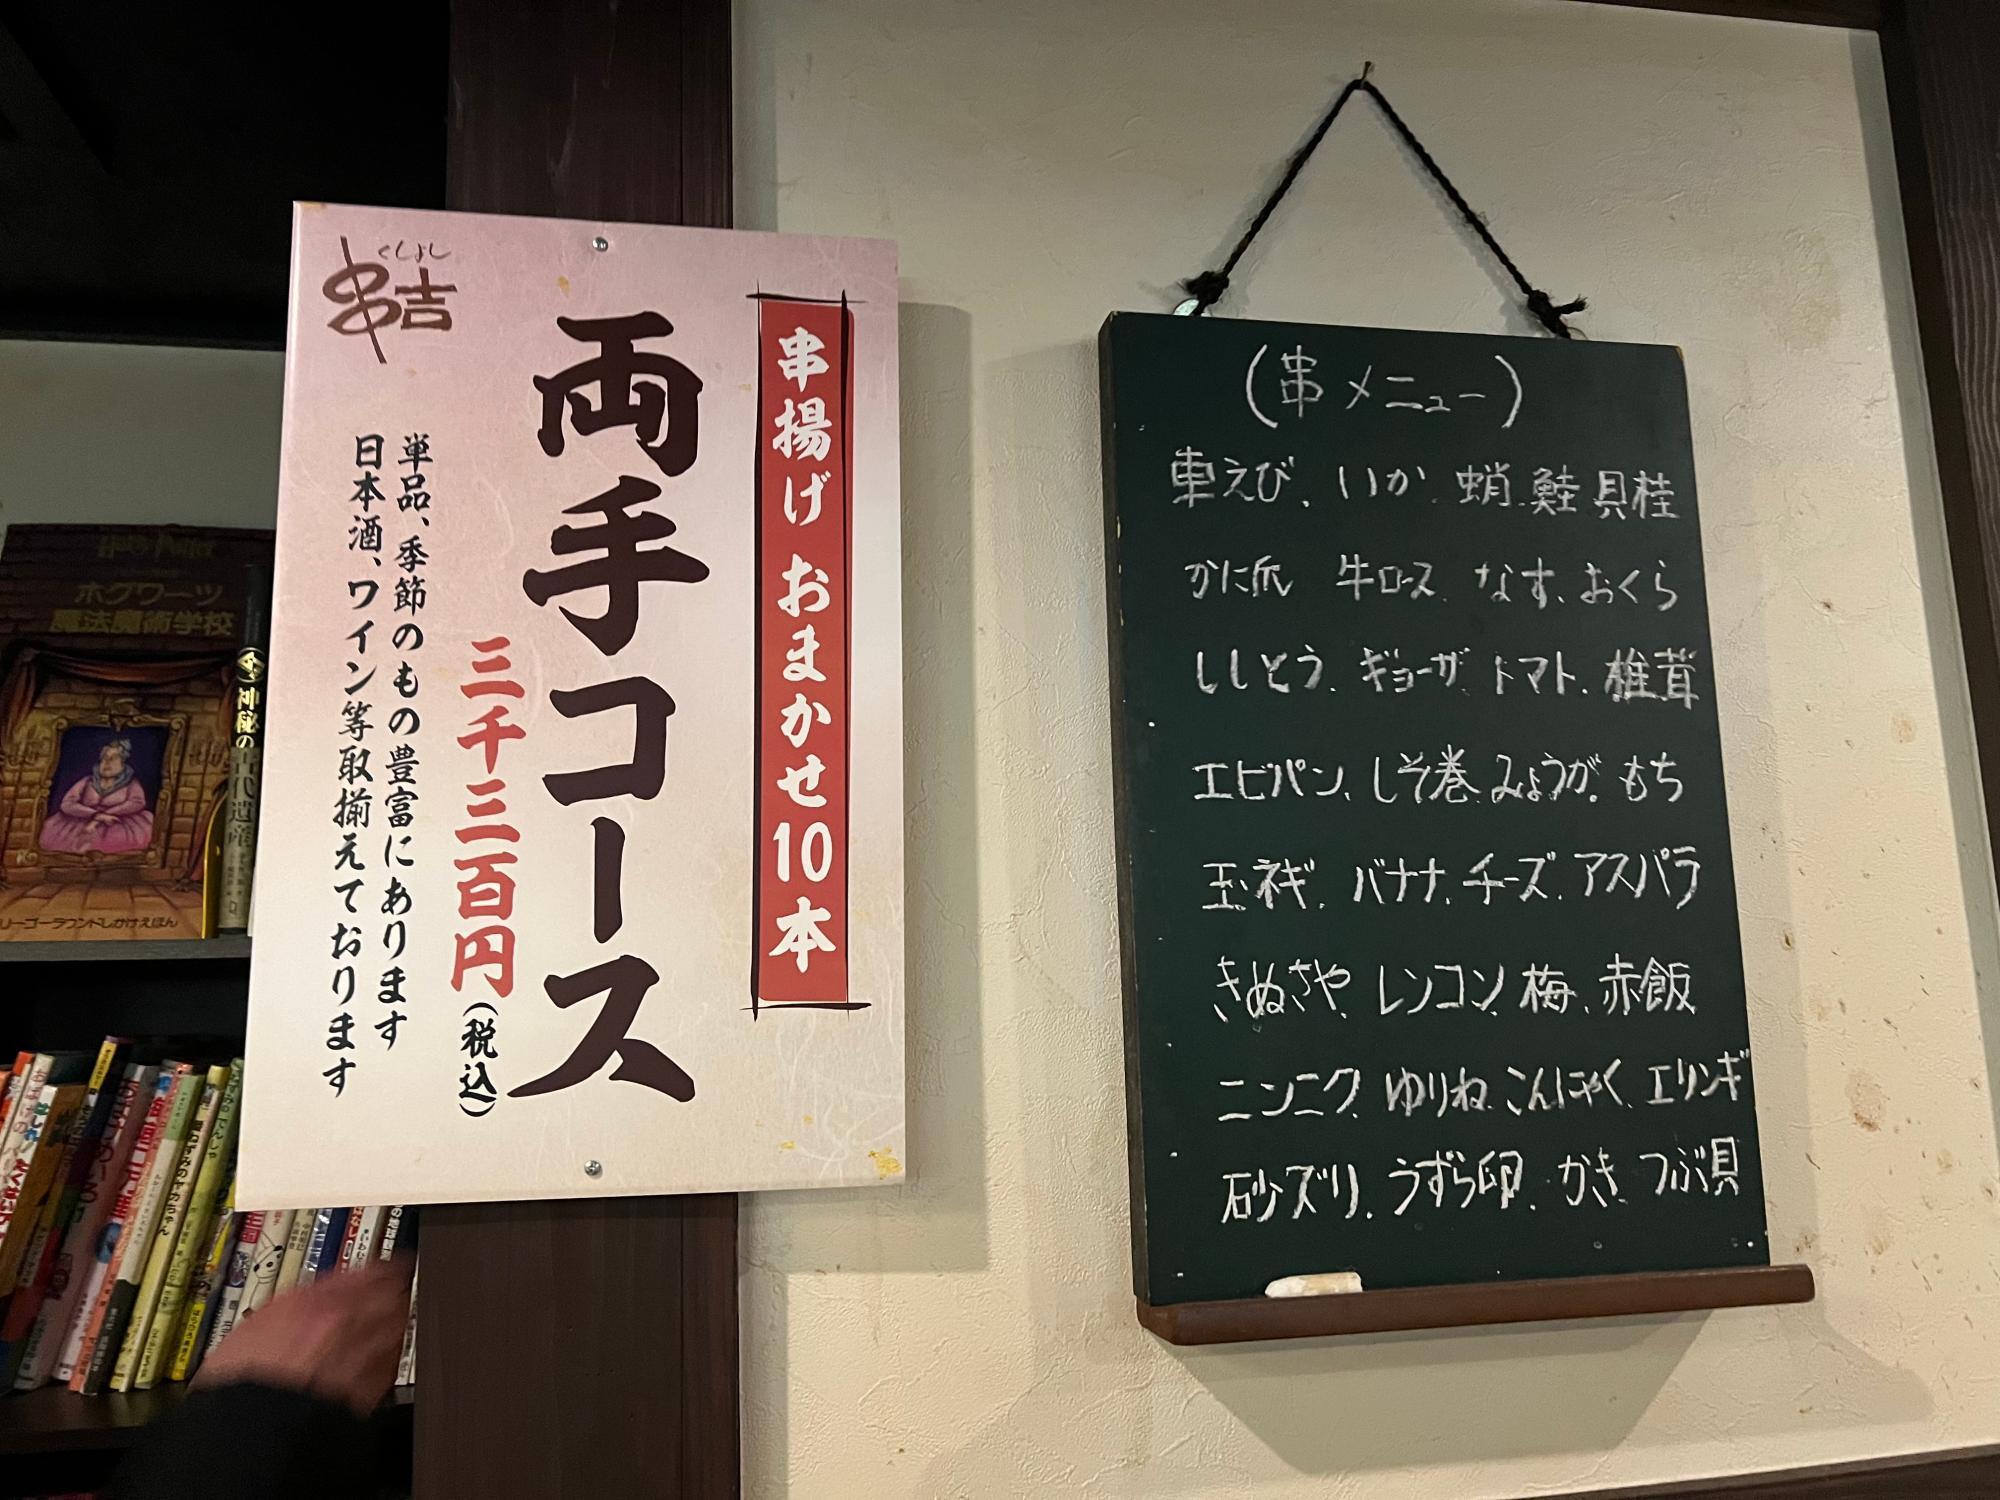 くしよし
串吉
串揚げ おまかせ10本
両手コース
三千三百円(税込)
単品、季節のもの豊富にあります
日本酒、ワイン等取揃えております
(串メニュー)
車えび、いか、蛸、鮭、貝柱
かに爪 牛ロース、なす、おくら
ししとう、ギョーザ、トマト、椎茸
エビパン、しそ巻、みょうが、もち
玉ネギ、バナナ、チーズ、アスパラ
きぬさや、レンコン、梅、赤飯
ニンニク、ゆりね、こんにゃく、エリンギ
砂ズリ、うずら卵、かき、つぶ貝
Harry Potter
ホグワーツ
魔法魔術学校
リーゴーラウンドしかけえほん
神秘の古代遺産